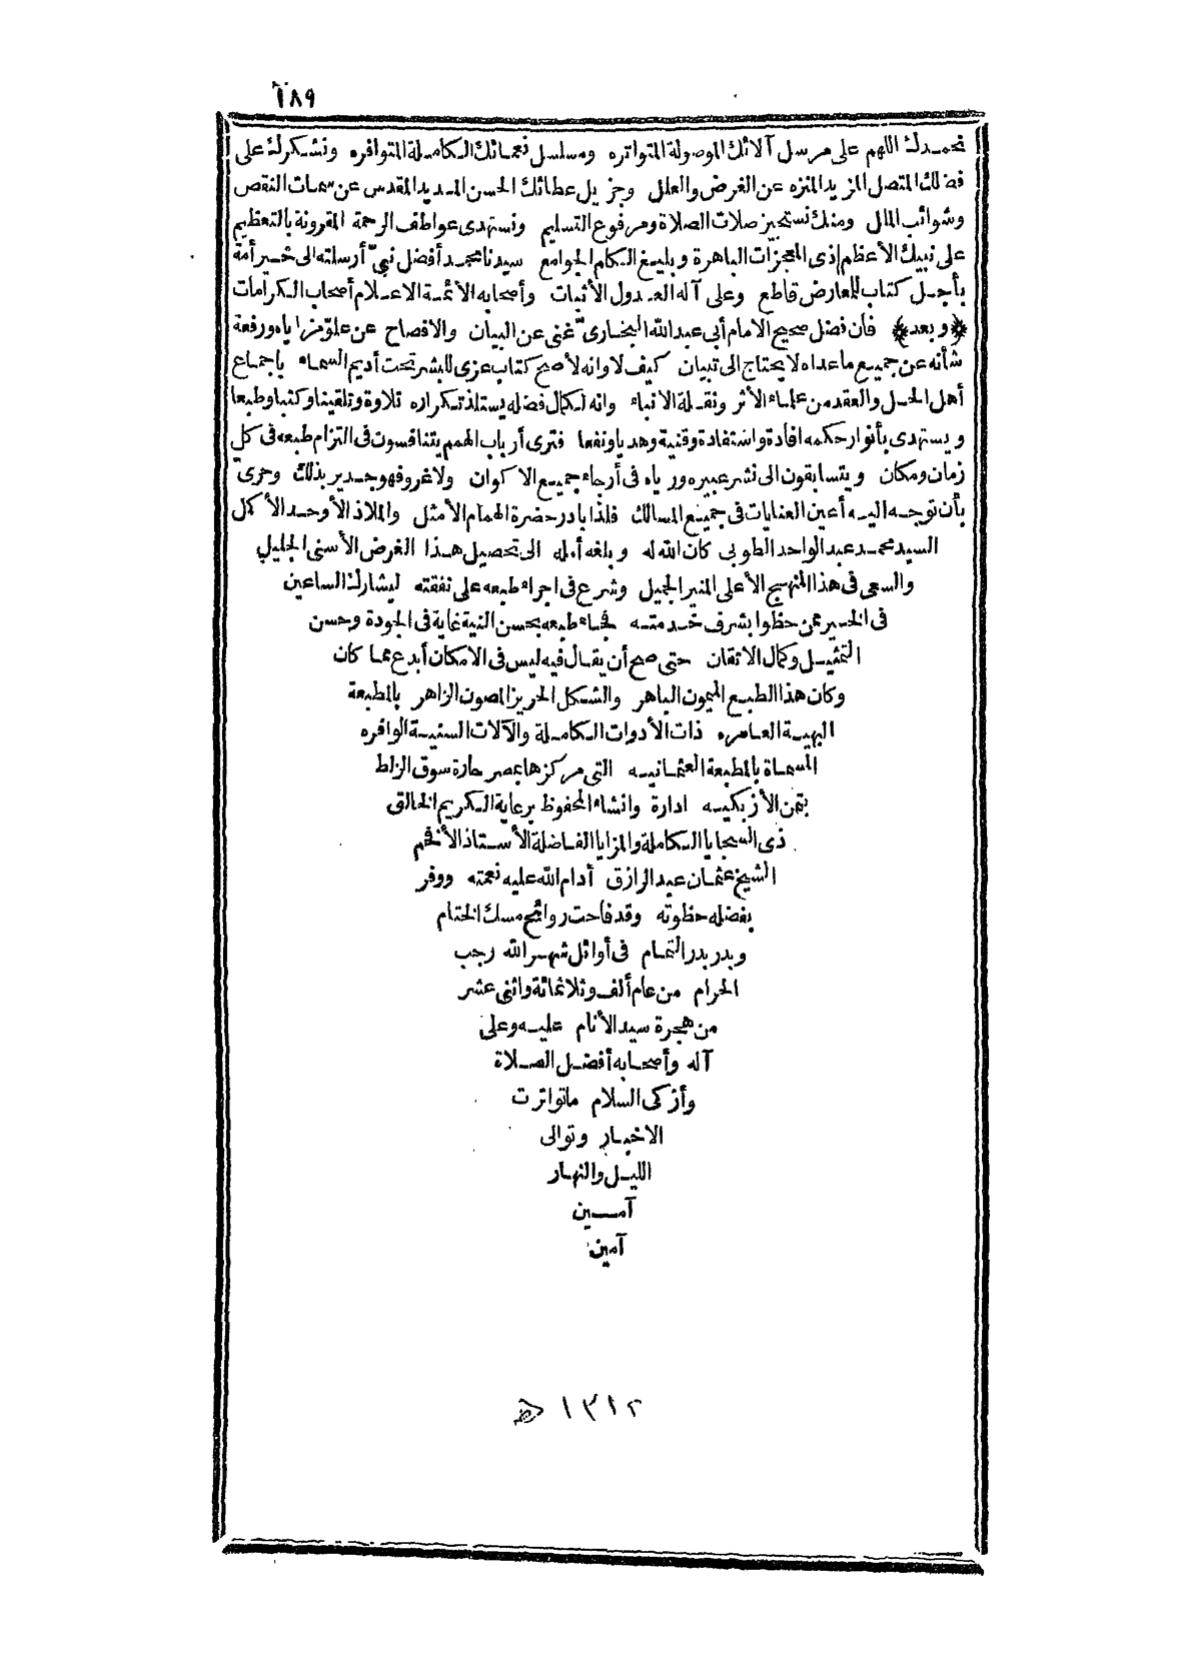 ١٨٩
نحمدك اللهم على مرسل آلائك الموصولة المتواتره ومسلسل نعمائك الكاملة المتوافره ونشكرك على
فضلك المتصل المزيد المنزه عن الغرض والعلل وجزيل عطائك الحسن المديد المقدس عن سمات النقص
وشوائب الملل ومنك نستجيز صلات الصلاة ومرفوع التسليم ونستهدى عواطف الرحمة المقرونة بالتعظيم
على نبيك الأعظم ذى المعجزات الباهرة وبليغ الكلم الجوامع سيدنا محمد أفضل نبىّ أرسلته الى خير أمة
بأجل كتاب للمعارض قاطع وعلى آله العدول الأثبات وأصحابه الأئمة الاعلام أصحاب الكرامات
﴿وبعد﴾ فان فضل صحيح الامام أبى عبد الله البخارىّ غنى عن البيان والافصاح عن علوّ مزاياه ورفعة
شأنه عن جميع ما عداه لا يحتاج الى تبيان كيف لا وانه لأصح كتاب عزى للبشر تحت أديم السماء باجماع
أهل الحل والعقد من علماء الأثر ونقلة الانباء وانه لكمال فضله يستلذ تكراره تلاوة وتلقينا وكتبا وطبعا
ويستهدى بأنوار حكمه افادة واستفادة وقنية وهديا ونفعا فترى أرباب الهمم يتنافسون فى التزام طبعه فى كل
زمان ومكان ويتسابقون الى نشر عبيره ورياه فى أرجاء جميع الاكوان ولا غرو فهو جدير بذلك وحرىّ
بأن توجه اليه أعين العنايات فى جميع المسالك فلذا بادر حضرة الهمام الأمثل والملاذ الأوحد الأكمل
السيد محمد عبد الواحد الطوبى كان الله له وبلغه أمله الى تحصيل هذا الغرض الأسنى الجليل
والسعى فى هذا المنهج الأعلى المنير الجميل وشرع فى اجراء طبعه على نفقته ليشارك الساعين
فى الخير ممن حظوا بشرف خدمته فجاء طبعه بحسن النية غاية فى الجودة وحسن
التمثيل وكمال الاتقان حتى صح أن يقال فيه ليس فى الامكان أبدع مما كان
وكان هذا الطبع الميمون الباهر والشكل الحريز المصون الزاهر بالمطبعة
البهية العامره ذات الأدوات الكاملة والآلات السنية الوافره
المسماة بالمطبعة العثمانيه التى مركزها بمصر حارة سوق الزلط
بثمن الأزبكيه ادارة وانشاء المحفوظ برعاية الكريم الخالق
ذى السجايا الكاملة والمزايا الفاضلة الأستاذ الأفخم
الشيخ عثمان عبد الرازق أدام الله عليه نعمته ووفر
بفضله حظوته وقد فاحت روائح مسك الختام
وبدر بدر التمام فى أوائل شهر الله رجب
الحرام من عام ألف وثلاثمائة واثنى عشر
من هجرة سيد الأنام عليه وعلى
آله وأصحابه أفضل الصلاة
وأزكى السلام ما تواترت
الاخبار وتوالى
الليل والنهار
آمين
آمين
١٣١٢ هـ